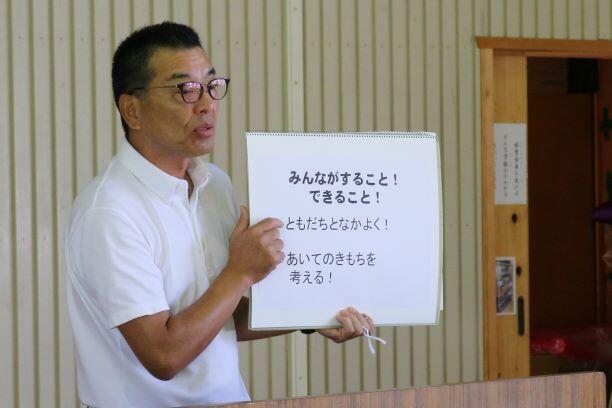 みんながすること！
できること！
ともだちとなかよく！
あいてのきもちを
考える！